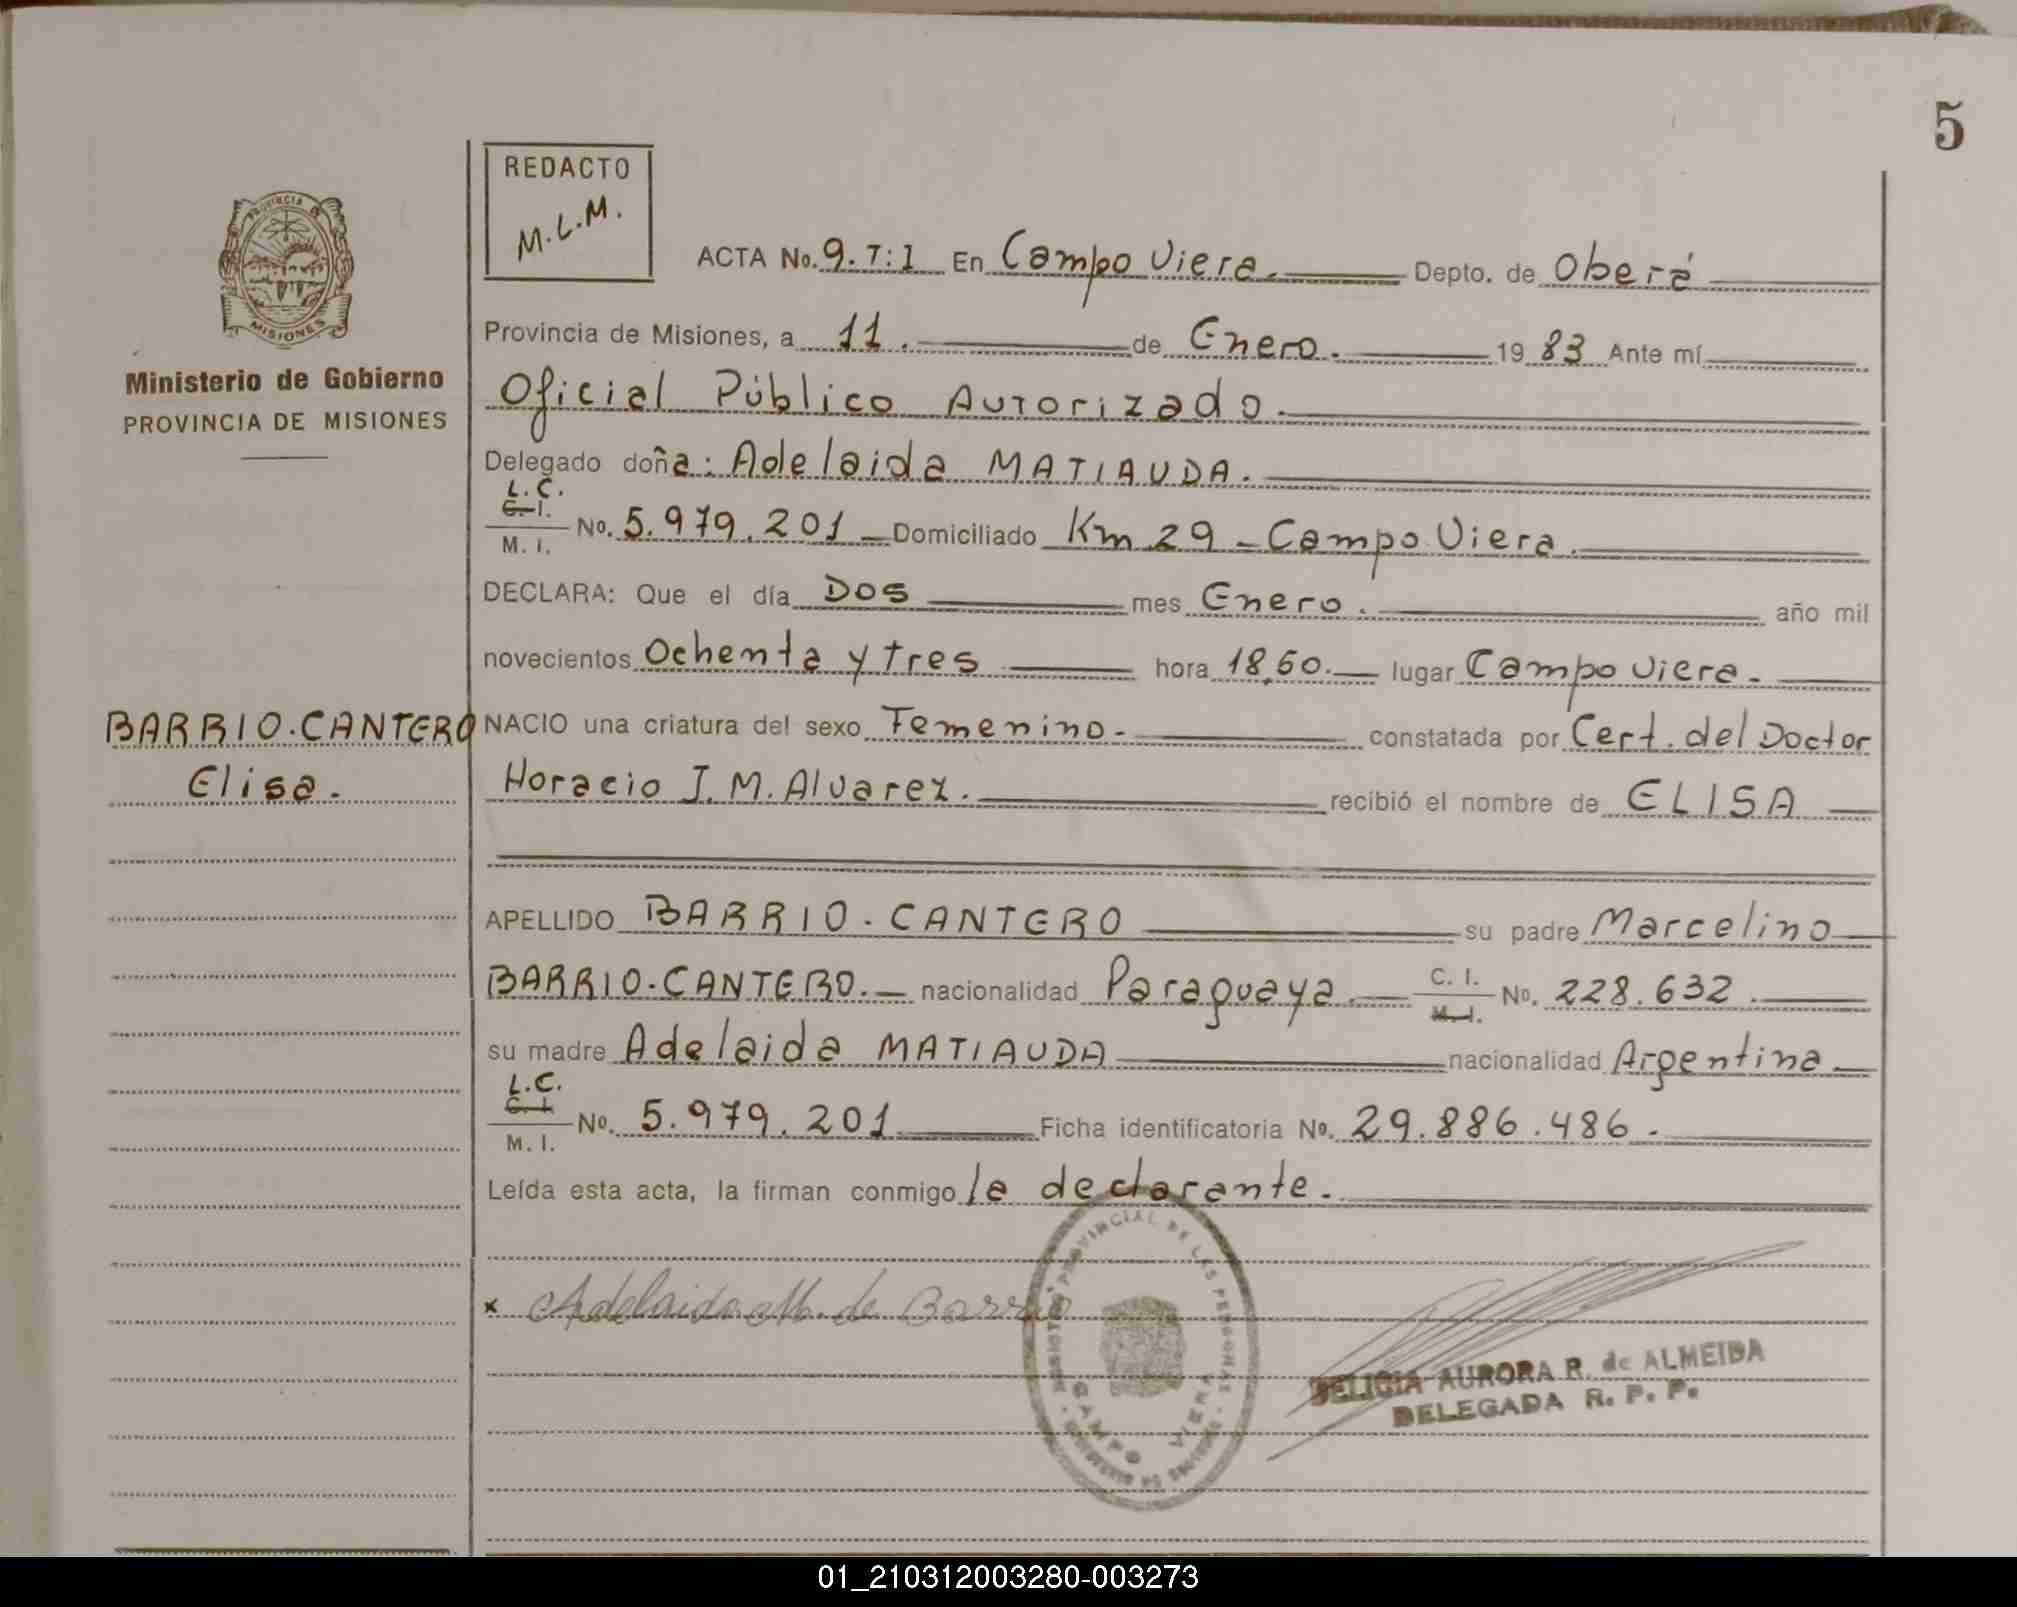 5
REDACTO
M.L.M.
PROVINCIA DE
MISIONES
Ministerio de Gobierno
PROVINCIA DE MISIONES
ACTA No. 9. T:1 En Campo Viera. Depto. de Oberá
Provincia de Misiones, a 11. de Enero. 1983 Ante mí
Oficial Público Autorizado.
Delegado doña: Adelaida MATIAUDA.
L.C.
C. I.
M. I. No. 5.979.201 Domiciliado Km 29 - Campo Viera.
DECLARA: Que el día DOS mes Enero. año mil
novecientos Ochenta y tres hora lugar Campo Viera.
BARRIO.CANTERO
Elisa.
NACIO una criatura del sexo Femenino. constatada por Cert. del Doctor
Horacio J. M. Alvarez. recibió el nombre de ELISA
APELLIDO BARRIO. CANTERO su padre Marcelino
BARRIO.CANTERO. nacionalidad Paraguaya. C. I.
M. I. No. 228.632.
su madre Adelaida MATIAUDA nacionalidad Argentina
L.C.
C. I.
M. I. No. 5.979.201 Ficha identificatoria No. 29.886.486.
Leída esta acta, la firman conmigo la declarante.
x Adelaida M. de Barrio
PROVINCIAL DE LAS PERSONAS
CAMPO VIERA
DELICIA AURORA R. de ALMEIDA
DELEGADA R. P. P.
01_210312003280-003273